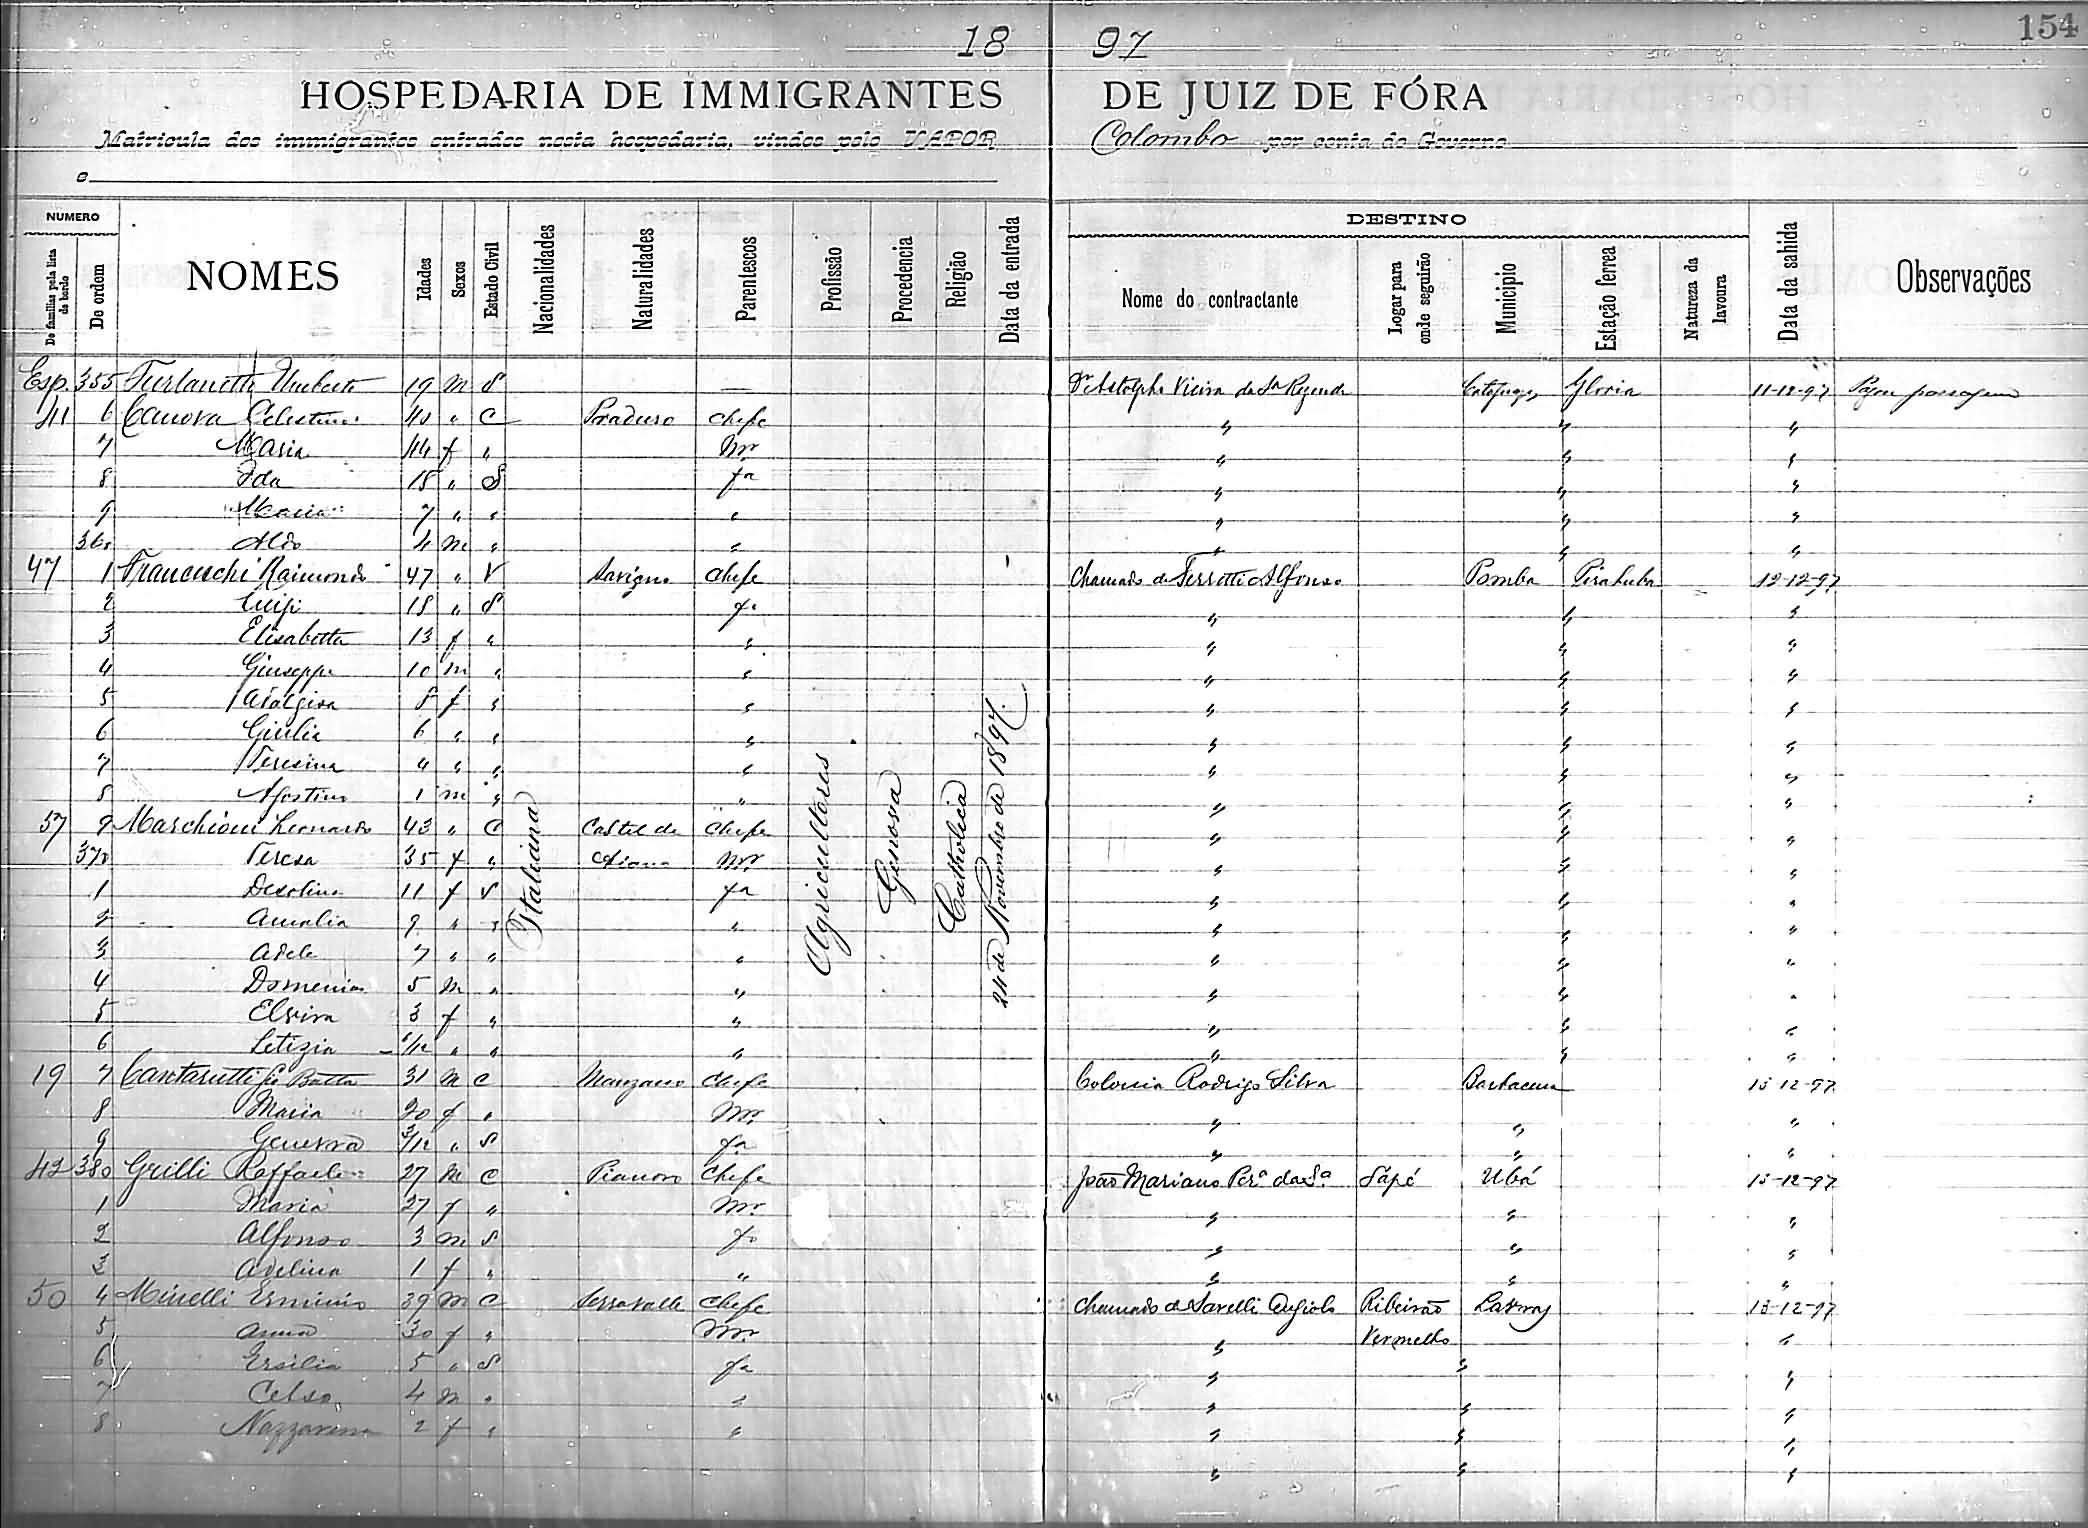 154
18 97
HOSPEDARIA DE IMMIGRANTES DE JUIZ DE FÓRA
Matricula dos immigrantes entrados nesta hospedaria, vindos pelo VAPOR Colombo por conta do Governo
e
NUMERO
De familias pela lista de bordo
De ordem
NOMES
Idades
Sexos
Estado Civil
Nacionalidades
Naturalidades
Parentescos
Profissão
Procedencia
Religião
Data da entrada
DESTINO
Nome do contractante
Logar para onde seguirão
Municipio
Estação ferrea
Natureza da lavoura
Data da sahida
Observações
Esp. 355 Furlanetti Umberto 19 m S — Dr Astolpho Vieira de Sa Rezende Gloria 11-12-97 Pagou passagem
41 6 Canova Celestino 40 " C chefe " " "
7 Maria 44 f " mr " " "
8 Ida 18 " S fa " " "
9 Maria 7 " " " " " "
360 Aldo 4 m " " " " "
47 1 Franceschi Raimondo 47 " V Savigno chefe Chamado de Ferrotti Alfonso Pomba Pirahuba 12-12-97
2 Luigi 18 " S fo " " "
3 Elisabetta 13 f " " " " "
4 Giuseppe 10 m " " " " "
5 Adalgisa 8 f " " " " "
6 Giulia 6 " " " " " "
7 Teresina 4 " " " " " "
8 Agostino 1 m " " " " "
57 9 Marchioni Leonardo 43 " C Castel de chefe " " "
370 Teresa 35 f " Aiano mr " " "
1 Desolina 11 f S fa " " "
2 Amalia 9 " " " " " "
3 Adele 7 " " " " " "
4 Domenico 5 m " " " " "
5 Elvira 3 f " " " " "
6 Letizia /12 " " " " " "
19 7 Cantarutti Gio Batta 31 m C Manzano chefe Colonia Rodrigo Silva Barbacena 13-12-97
8 Maria 20 f " mr " " "
9 Genevra 3/12 " S fa " " "
42 380 Grilli Raffaele 27 m C Pianoro chefe João Mariano Pera da Sa Sapé Ubá 13-12-97
1 Maria 27 f " mr " " "
2 Alfonso 3 m S fo " " "
3 Adelina 1 f " " " " "
50 4 Minelli Erminio 39 m C Serravalle chefe Chamado de Savelli Angiolo Ribeirão Lavras 13-12-97
5 Anna 30 f " mr " Vermelho "
6 Ersilia 5 " S fa " " "
7 Celso 4 m " " " " "
8 Nazzarena 2 f " " " " "
" " "
Italiana
Agricultores
Genova
Catholica
24 de Novembro de 1897.